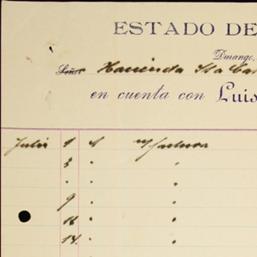 ESTADO DE
Durango,
Señor Hacienda Sta Ca
en cuenta con Luis
Julio 1 " M/factura
5 " "
" "
9 " "
12 " "
14 " "